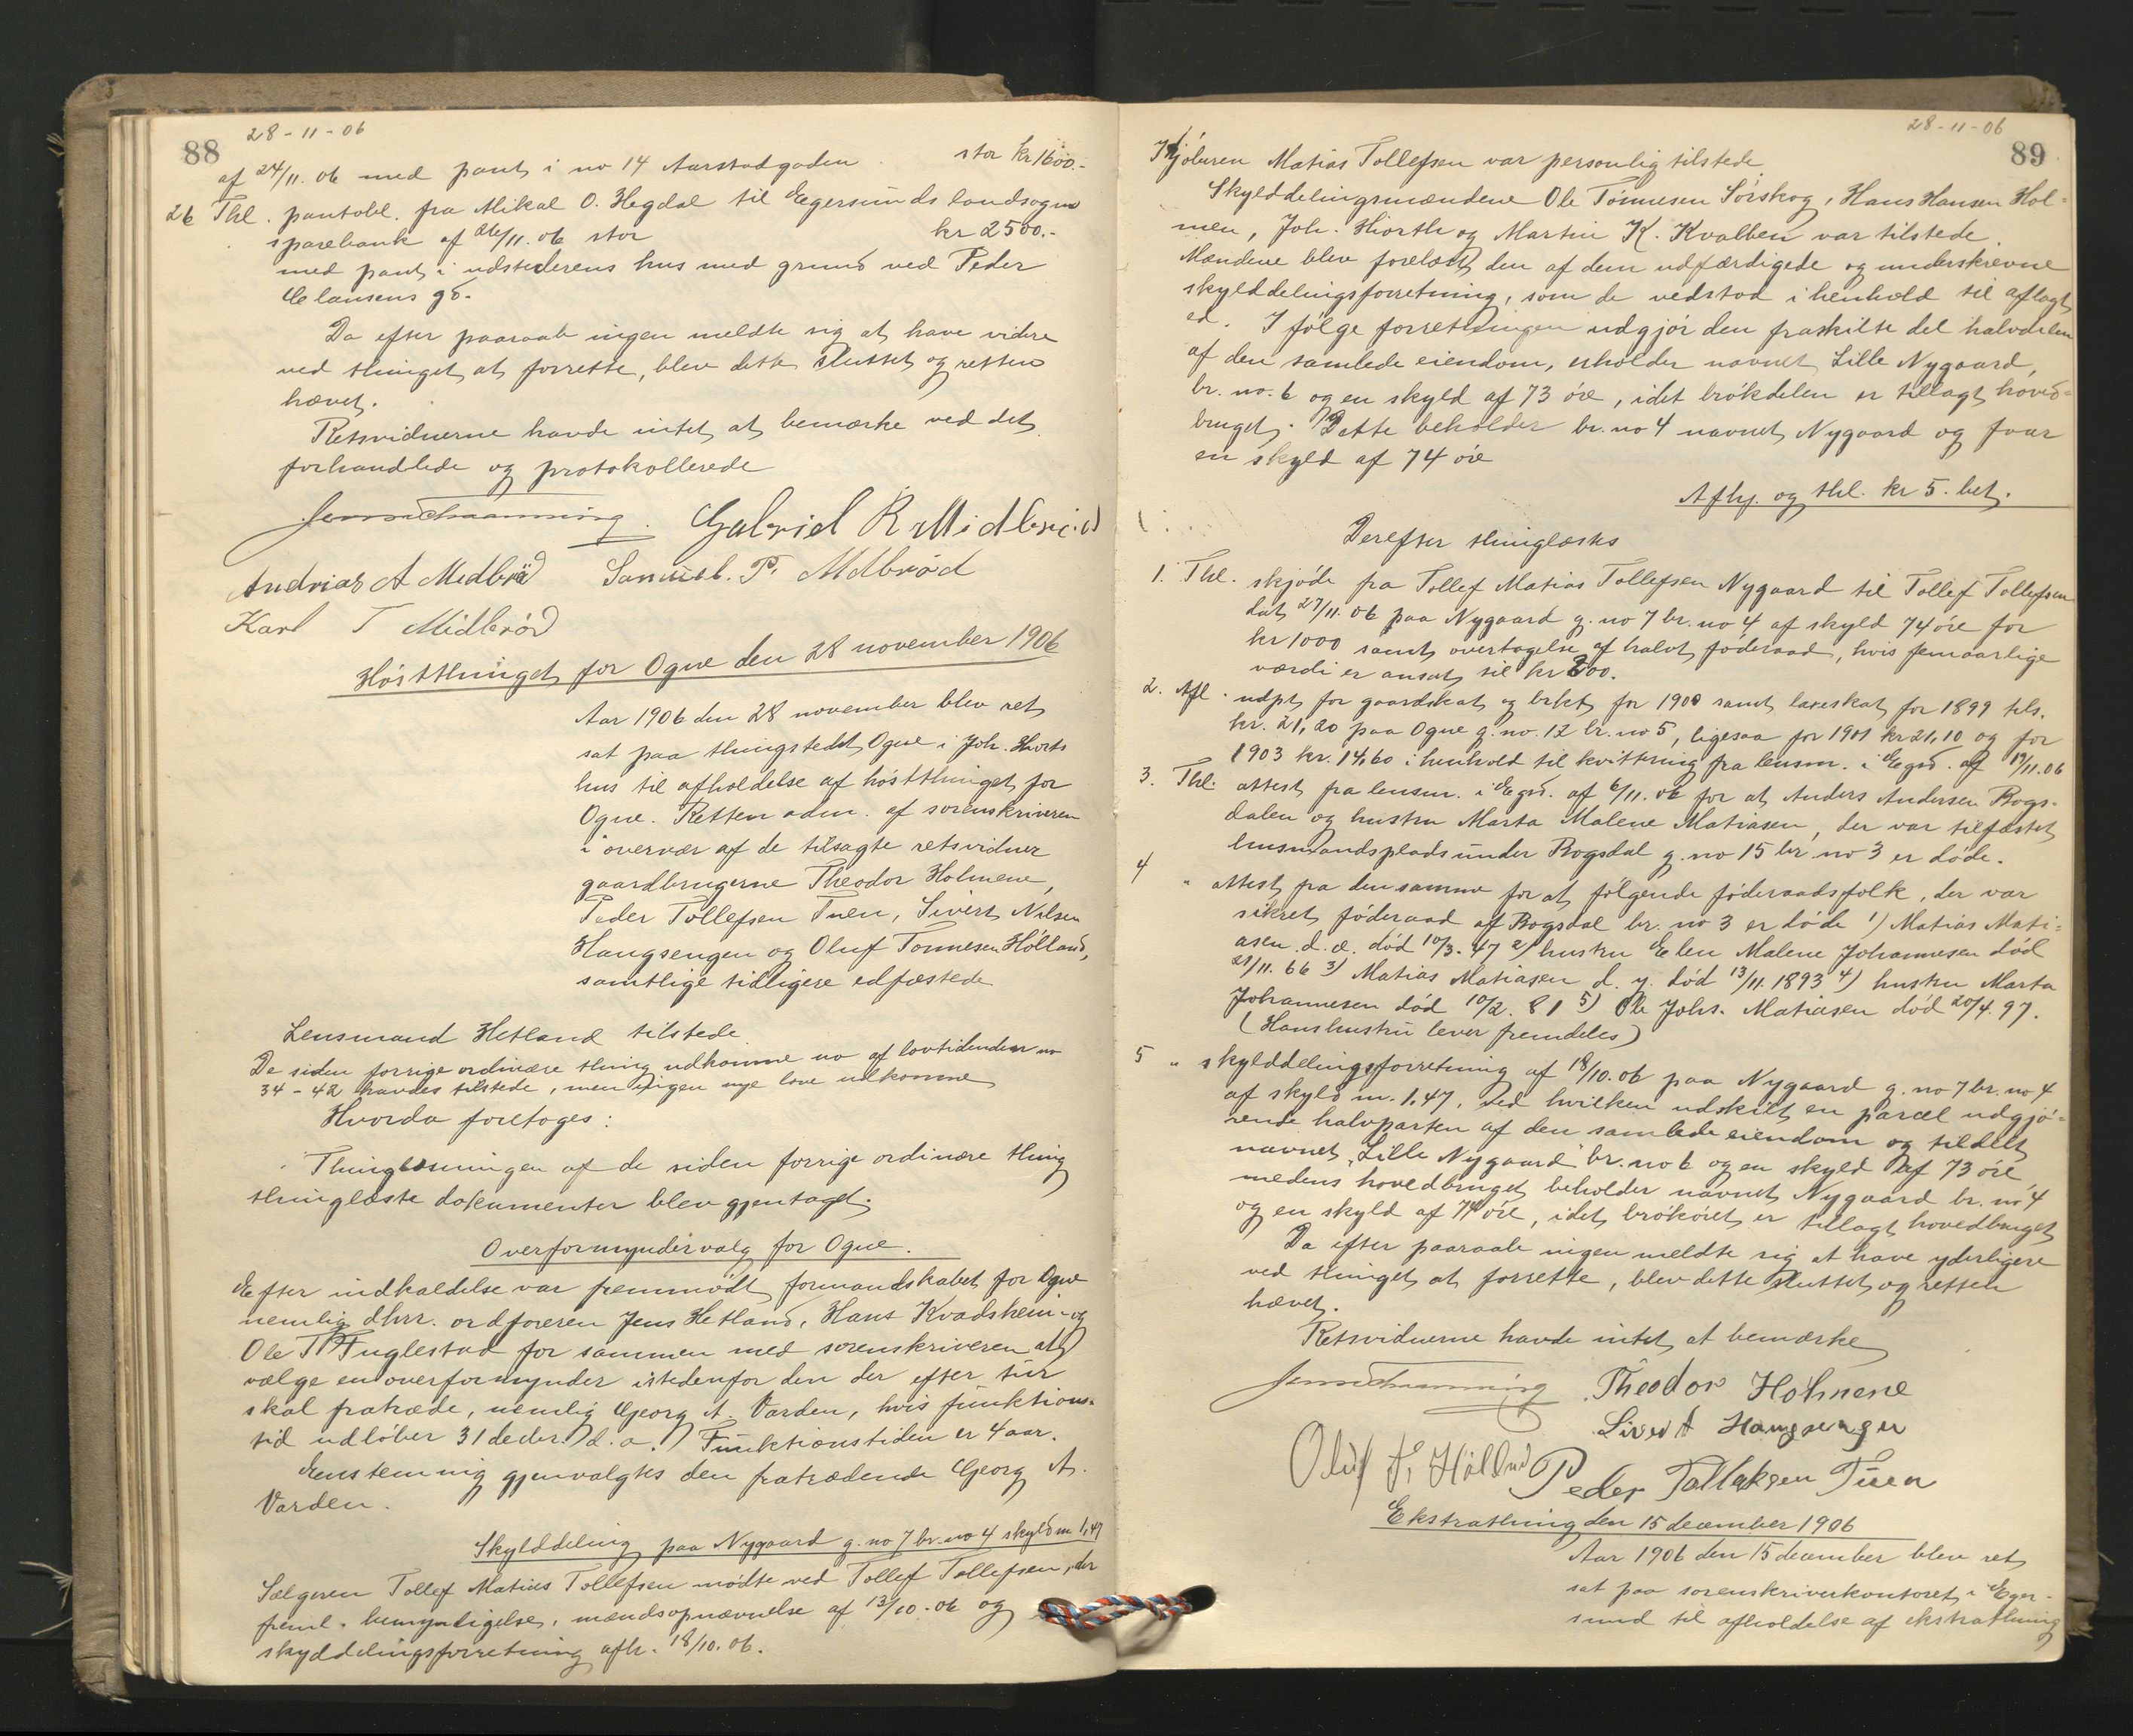 88
28-11-06
af 24/11.06 med pant i no 14 Aarstadgaden stor kr 1600.-
26 Thl. pantobl. fra Mikal O. Hegdal til Egersunds landsogns
sparebank af 26/11.06 stor kr 2500.-
med pant i udstederens hus med grund ved Peder
Clausens gd.
Da efter paaraab ingen meldte sig at have videre
ved thinget at forrette, blev dette sluttet og retten
hævet.
Retsvidnerne havde intet at bemærke ved det
forhandlede og protokollerede
Gabriel R Midbröd
Andrias A Midbröd Samuel. P. Midbröd
Karl T Midbröd
Høstthinget for Ogne den 28 november 1906
Aar 1906 den 28 november blev ret
sat paa thingstedet Ogne i Joh. Hiorts
hus til afholdelse af høstthinget for
Ogne. Retten adm. af sorenskriveren
i overvær af de tilsagte retsvidner
gaardbrugerne Theodor Holmene,
Peder Tollefsen Tuen, Sivert Nilsen
Haugsengen og Oluf Tønnesen Hölland,
samtlige tidligere edfæstede
Lensmand Hetland tilstede.
De siden forrige ordinære thing udkomne no af lovtidenden no
34-42 havdes tilstede, men ingen nye love udkomne
Hvorda foretoges:
Thinglæsningen af de siden forrige ordinære thing
thinglæste dokumenter blev gjentaget.
Overformyndervalg for Ogne.
Efter indkaldelse var fremmødt formandskabet for Ogne
nemlig dhrr. ordføreren Jens Hetland, Hans Kvadsheim og
Ole T Fuglestad for sammen med sorenskriveren at
vælge en overformynder istedenfor den der efter tur
skal fratræde, nemlig Georg A. Varden, hvis funktions-
tid udløber 31 decbr. d.a. Funktionstiden er 4 aar.
Enstemmig gjenvalgtes den fratrædende Georg A.
Varden.
Skylddeling paa Nygaard g. no 7 br. no 4 skyld m 1,47
Sælgeren Tollef Matias Tollefsen mødte ved Tollef Tollefsen, der
freml. bemyndigelse, mændsopnævnelse af 13/10.06 og
skylddelingsforretning afh. 18/10.06.
28-11-06
89
Kjøberen Matias Tollefsen var personlig tilstede
Skylddelingsmændene Ole Tønnesen Sørskog, Hans Hansen Hol-
men, Joh. Hiorth og Martin K. Kvalben var tilstede.
Mændene blev forelæst den af dem udfærdigede og underskrevne
skylddelingsforretning, som de vedstod i henhold til aflagt
ed. I følge forretningen udgjør den fraskilte del halvdelen
af den samlede eiendom, erholder navnet Lille Nygaard,
br. no. 6 og en skyld af 73 øre, idet brøkdelen er tillagt hoved-
bruget. Dette beholder br. no 4 navnet Nygaard og faar
en skyld af 74 øre
Afhj. og thl. kr 5. bet.
Derefter thinglæstes
1. Thl. skjøde fra Tollef Matias Tollefsen Nygaard til Tollef Tollefsen
dat 27/11.06 paa Nygaard g. no 7 br. no 4 af skyld 74 øre for
kr 1000 samt overtagelse af halvt føderaad, hvis femaarlige
værdi er ansat til kr 200.
2. Afl. udpt for gaardskat og brkt for 1900 samt løseskat for 1899 tils.
kr. 21,20 paa Ogne g. no. 12 br. no 5, ligesaa for 1901 kr 21,10 og for
1903 kr. 14,60 i henhold til kvittering fra lensm. i Egsd. af 19/11.06
3. Thl. attest fra lensm. i Egsd. af 6/11.06 for at Anders Andersen Bogs-
dalen og hustru Marta Malene Matiasen, der var tilfæstet
husmandsplads under Bogsdal g. no 15 br. no 3 er døde.
4 " attest fra den samme for at følgende føderaadsfolk, der var
sikret føderaad af Bogsdal br. no 3 er døde 1) Matias Mati-
asen d. æ. død 10/3.47 2) hustru Elen Malene Johannesen død
21/11.66 3) Matias Matiasen d. y. død 13/11.1893 4) hustru Marta
Johannesen død 10/2.81 5) Ole Johs. Matiasen død 20/4.97.
(Hans hustru lever fremdeles)
5 " skylddelingsforretning af 18/10.06 paa Nygaard g. no 7 br. no 4
af skyld m. 1,47, ved hvilken udskilt en parcel udgjø-
rende halvparten af den samlede eiendom og tildelt
navnet "Lille Nygaard" br. no 6 og en skyld af 73 øre
medens hovedbruget beholder navnet Nygaard br. no 4
og en skyld af 74 øre, idet brøkøret er tillagt hovedbruget
Da efter paaraab ingen meldte sig at have yderligere
ved thinget at forrette, blev dette sluttet og retten
hævet.
Retsvidnerne havde intet at bemærke
Theodor Holmene
Sivert Haugsengen
Oluf T. Hölland Peder Tollaksen Tuen
Ekstrathing den 15 december 1906
Aar 1906 den 15 december blev ret
sat paa sorenskriverkontoret i Eger-
sund til afholdelse af ekstrathing